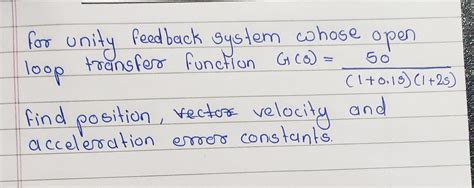 for unity feedback system whose open
loop transfer function G(s) = 50
(1+0.1s)(1+2s)
find position, vector velocity and
acceleration error constants.